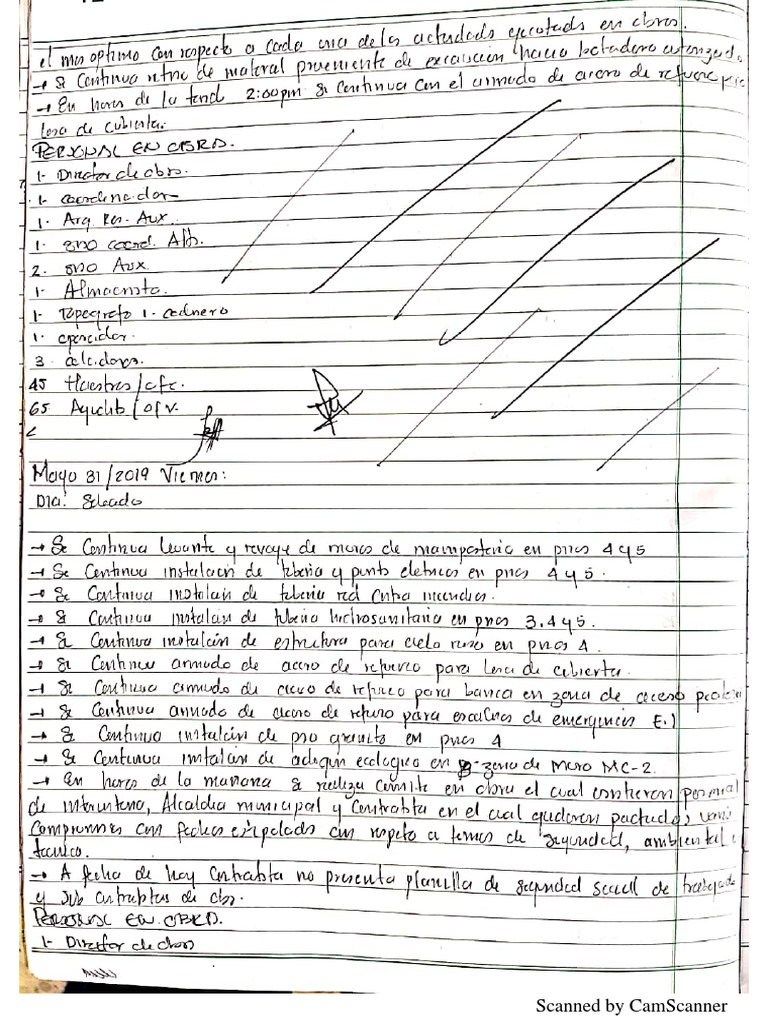 el mas optimo con respecto a cada una de las actividades ejecutadas en obra.
→ Se Continua retiro de material proveniente de excavación hacia botadero autorizado
→ En horas de la tarde 2:00pm se continua con el armado de acero de refuerzo para
losa de cubierta.
PERSONAL EN OBRA.
1- Director de obra.
1- coordinador
1. Arq Res. Aux
1. SISO coord. Alt.
2. SISO Aux
1- Almacenista.
1- Topografo 1- cadenero
1. operador.
3. celadores.
45 Maestros/ofc.
65 Ayudte/ofv.
Mayo 31/2019 Viernes:
Dia: Soleado
→ Se Continua levante y revoque de muros de mamposteria en pisos 4 y 5
→ Se Continua instalación de tuberia y punto eletricos en pisos 4 y 5.
→ Se Continua instalación de tuberia red contra incendios.
→ Se Continua instalación de tuberia hidrosanitaria en pisos 3, 4 y 5.
→ Se Continua instalación de estructura para cielo raso en pisos 4.
→ Se Continua armado de acero de refuerzo para losa de cubierta.
→ Se Continua armado de acero de refuerzo para banca en zona de acceso
→ Se Continua armado de acero de refuerzo para escaleras de emergencia E.1
→ Se Continua instalación de piso granito en pisos 4
→ Se Continua instalación de adoquin ecologico en zona de Muro MC-2.
→ En horas de la mañana se realiza comite en obra el cual asistieron personal
de interventoria, Alcaldia municipal y Contratista en el cual quedaron pactados varios
compromisos con fechas estipuladas con respeto a temas de seguridad, ambiental e
tecnico.
→ A fecha de hoy Contratista no presenta planilla de seguridad social de trabajado
y sub contratistas de obra.
PERSONAL EN OBRA.
1- Director de obra
Scanned by CamScanner